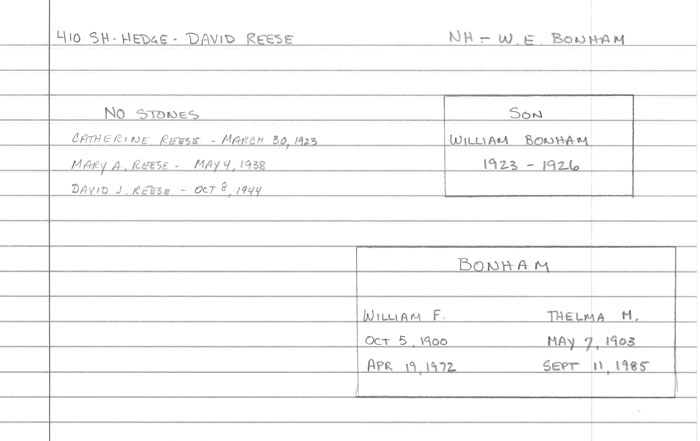 410 SH-HEDGE - DAVID REESE
NH - W.E. BONHAM
NO STONES
CATHERINE REESE - MARCH 30, 1923
MARY A. REESE - MAY 4, 1938
DAVID J. REESE - OCT 8, 1944
SON
WILLIAM BONHAM
1923 - 1926
BONHAM
WILLIAM F.
OCT 5, 1900
APR 19, 1972
THELMA M.
MAY 7, 1903
SEPT 11, 1985